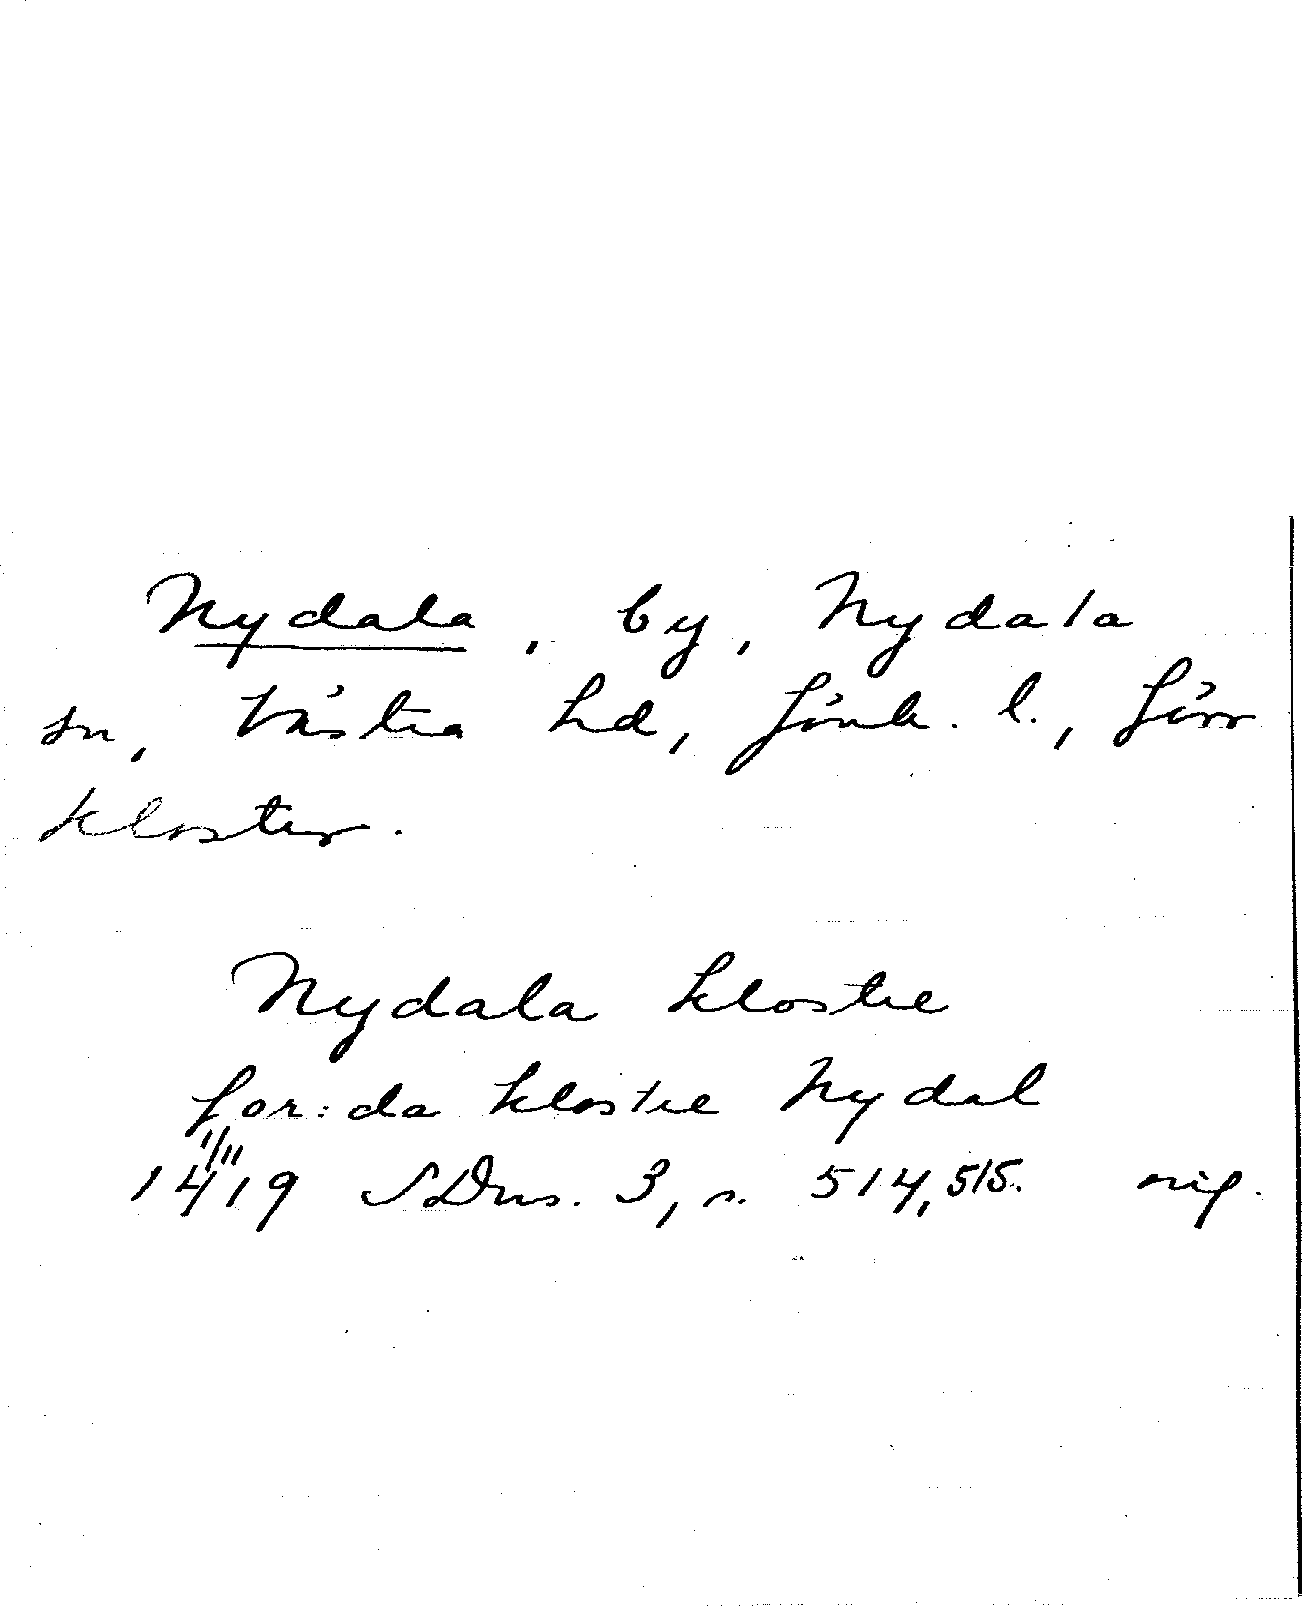 Nydala, by, Nydala
sn, Västra hd, Jönk. l., förr
kloster.
Nydala klostre
for:da klostre Nydal
11/11
1419 SDns. 3, s. 514, 515. orig.